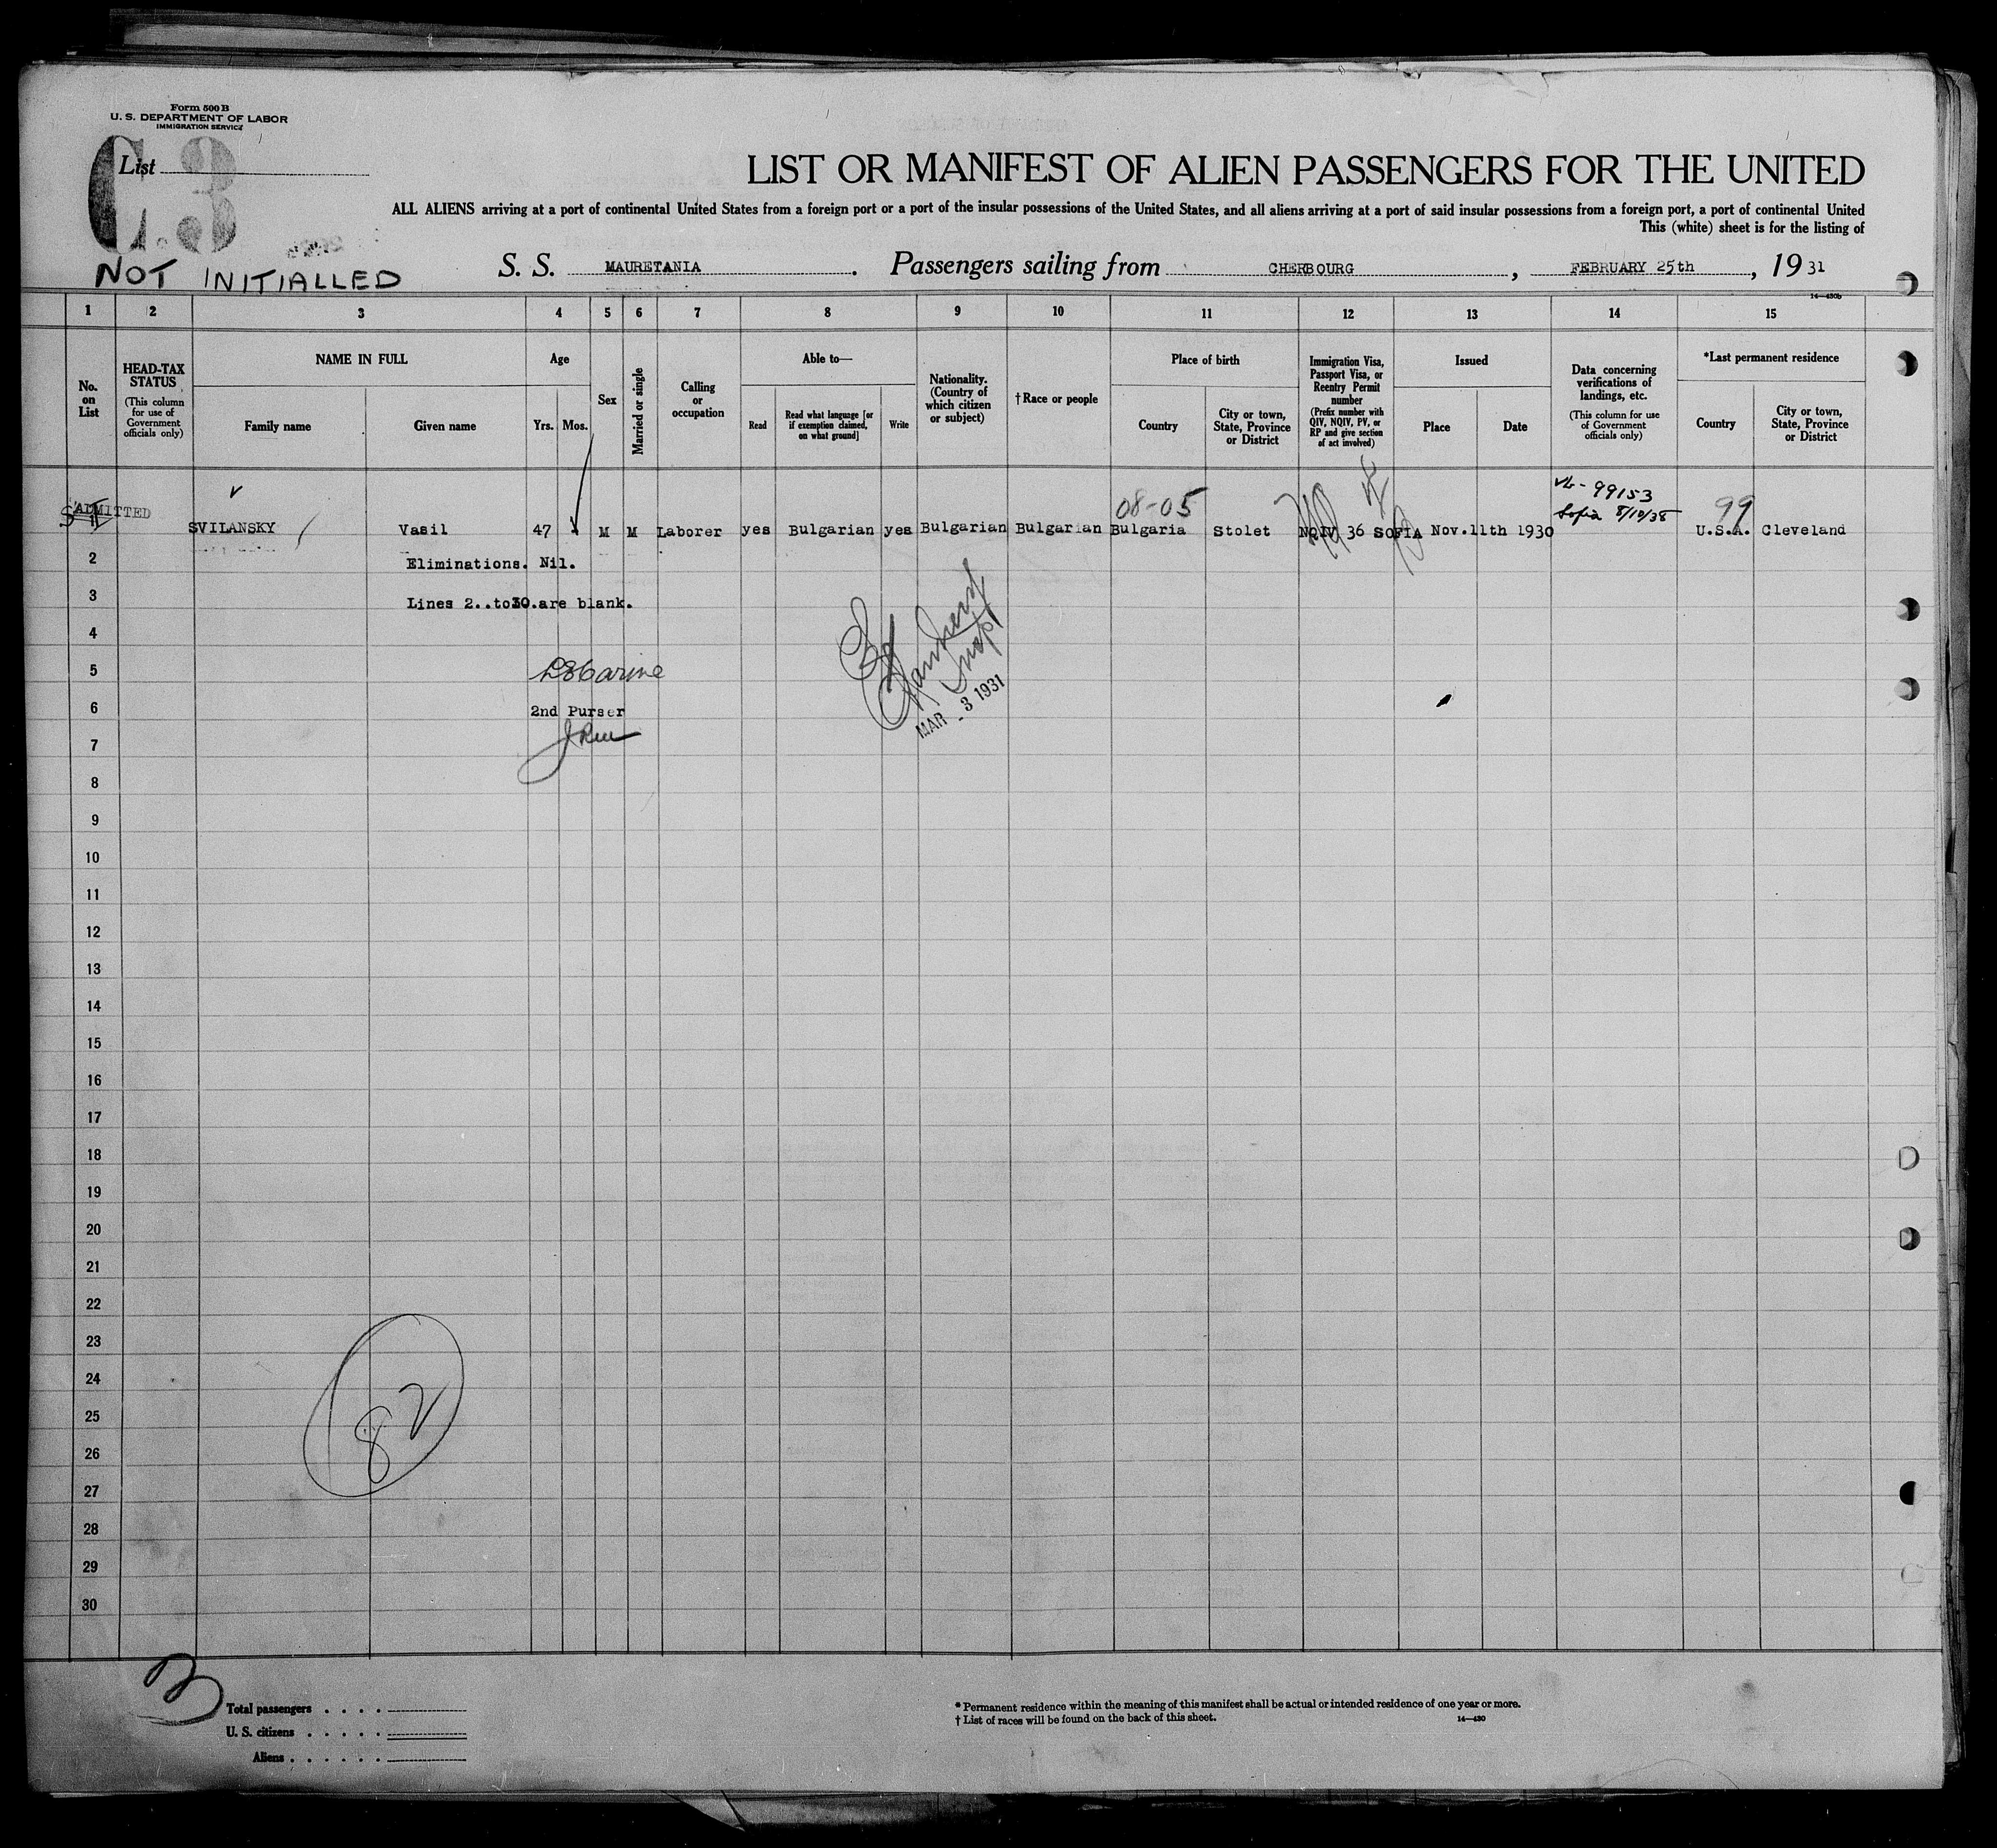 Form 500 B
U. S. DEPARTMENT OF LABOR
IMMIGRATION SERVICE
List
C.3
NOT INITIALLED
LIST OR MANIFEST OF ALIEN PASSENGERS FOR THE UNITED
ALL ALIENS arriving at a port of continental United States from a foreign port or a port of the insular possessions of the United States, and all aliens arriving at a port of said insular possessions from a foreign port, a port of continental United
This (white) sheet is for the listing of
S. S. MAURETANIA. Passengers sailing from CHERBOURG, FEBRUARY 25th, 1931
14—430b
1 2 3 4 5 6 7 8 9 10 11 12 13 14 15
No. on List
HEAD-TAX STATUS (This column for use of Government officials only)
NAME IN FULL
Family name
Given name
Age
Yrs. Mos.
Sex
Married or single
Calling or occupation
Able to—
Read
Read what language [or if exemption claimed, on what ground]
Write
Nationality. (Country of which citizen or subject)
†Race or people
Place of birth
Country
City or town, State, Province or District
Immigration Visa, Passport Visa, or Reentry Permit number (Prefix number with QIV, NQIV, PV, or RP and give section of act involved)
Issued
Place
Date
Data concerning verifications of landings, etc. (This column for use of Government officials only)
*Last permanent residence
Country
City or town, State, Province or District
08-05
99153
Sofia 8/10/38
99
ADMITTED
SVILANSKY Vasil 47 M M Laborer yes Bulgarian yes Bulgarian Bulgarian Bulgaria Stolet NQIV 36 SOFIA Nov.11th 1930 U.S.A. Cleveland
2 Eliminations. Nil.
3 Lines 2..to30.are blank.
4
5
6 2nd Purser
MAR _ 3 1931
7
8
9
10
11
12
13
14
15
16
17
18
19
20
21
22
23
24
25
82
26
27
28
29
30
Total passengers . . . .
U. S. citizens . . . . .
Aliens . . . . . .
* Permanent residence within the meaning of this manifest shall be actual or intended residence of one year or more.
† List of races will be found on the back of this sheet.
14—430